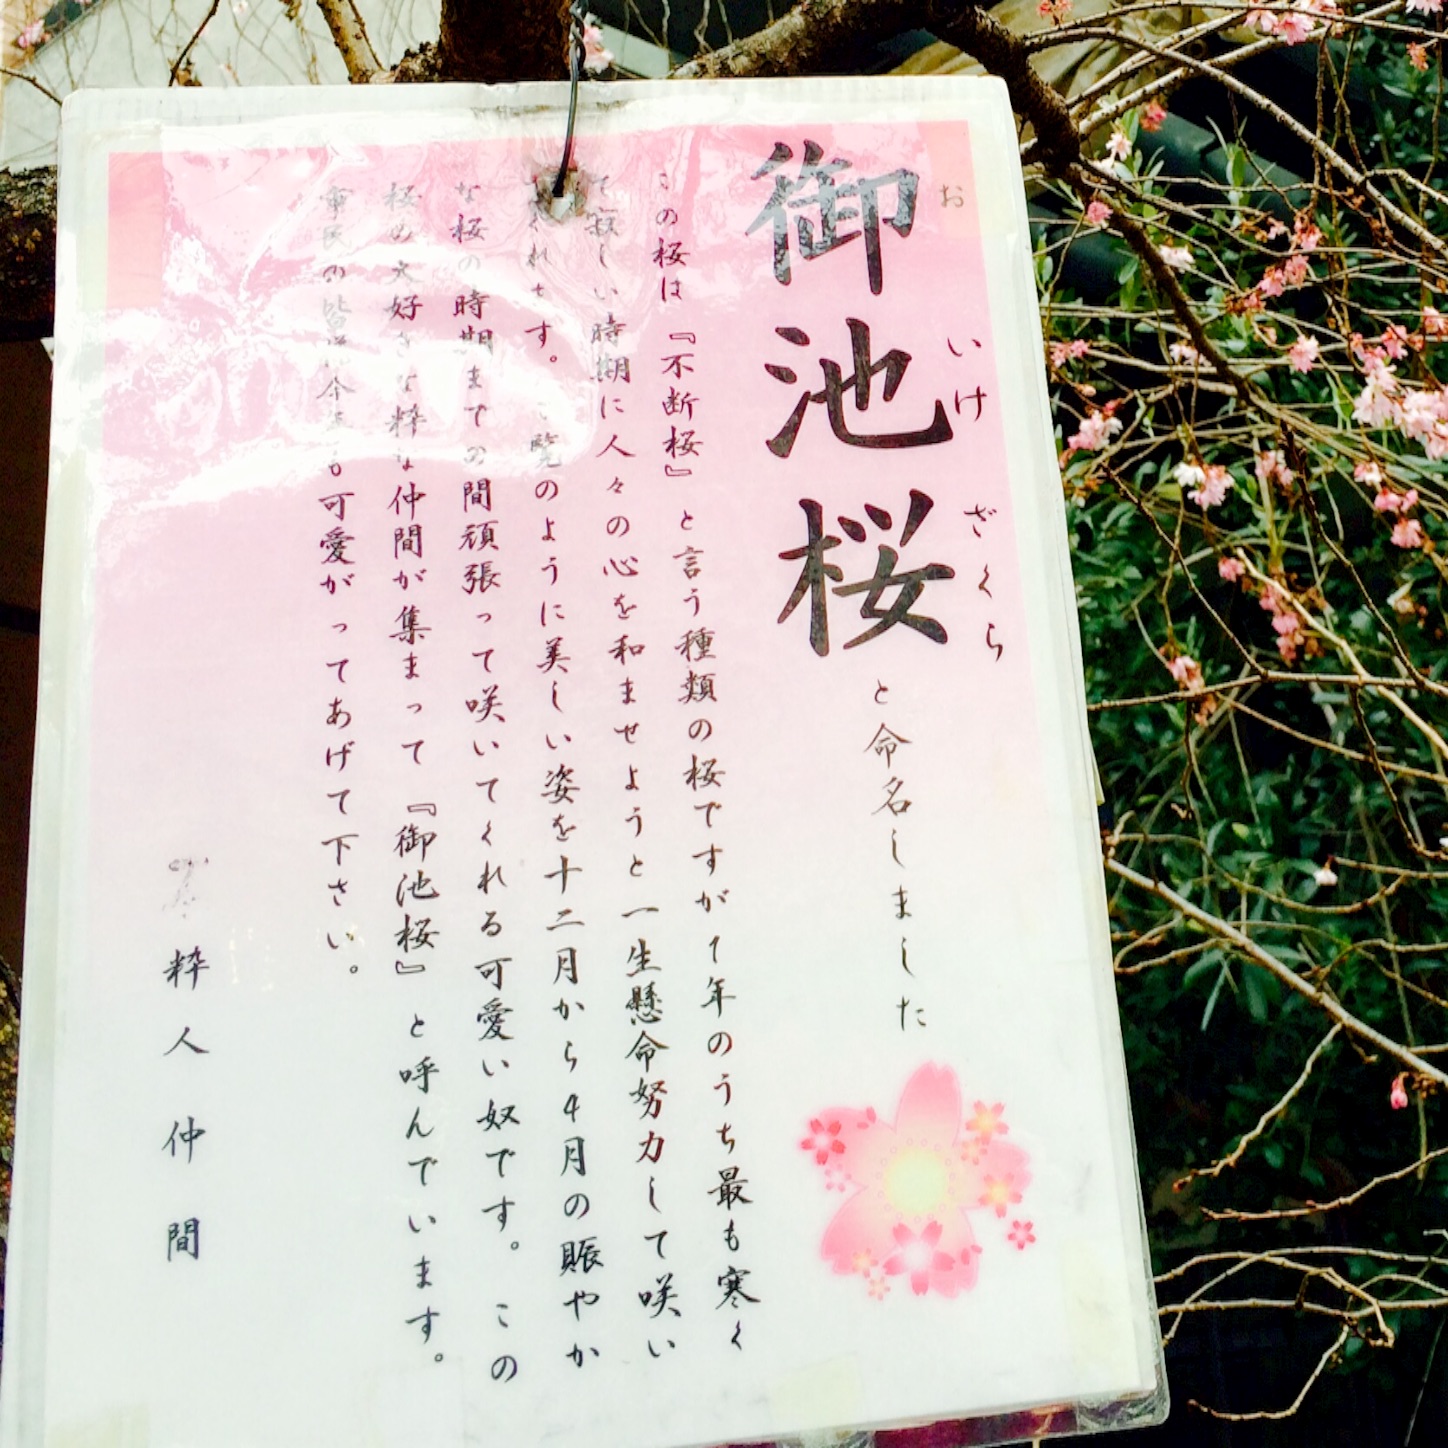 御池桜と命名しました
おいけざくら
この桜は『不断桜』と言う種類の桜ですが1年のうち最も寒く
て寂しい時期に人々の心を和ませようと一生懸命努力して咲い
てくれます。ご覧のように美しい姿を十二月から4月の賑やか
な桜の時期までの間頑張って咲いてくれる可愛い奴です。この
桜の大好きな粋な仲間が集まって『御池桜』と呼んでいます。
市民の皆 も可愛がってあげて下さい。
粋人仲間